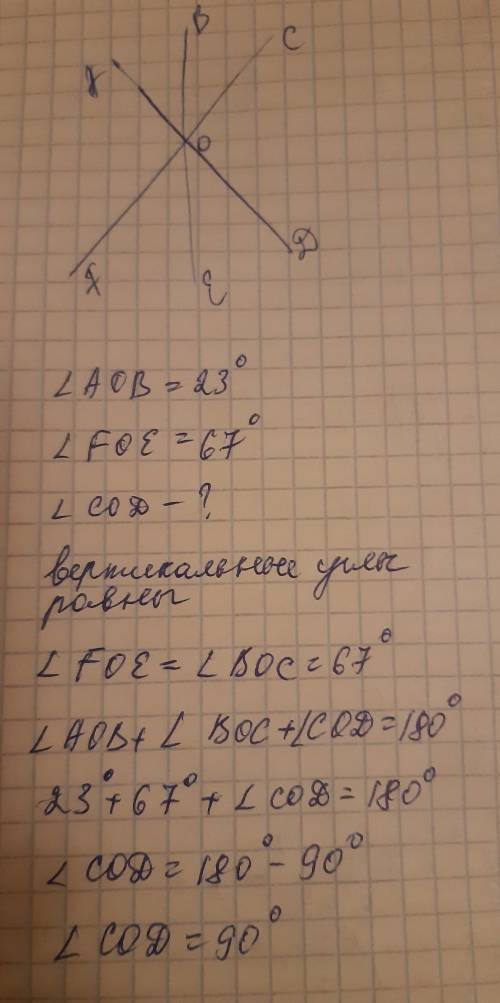 B
C
O
D
E
∠AOB = 23°
∠FOE = 67°
∠COD - ?
вертикальные углы
равны
∠FOE = ∠BOC = 67°
∠AOB + ∠ BOC + ∠COD = 180°
23° + 67° + ∠COD = 180°
∠COD = 180° - 90°
∠COD = 90°